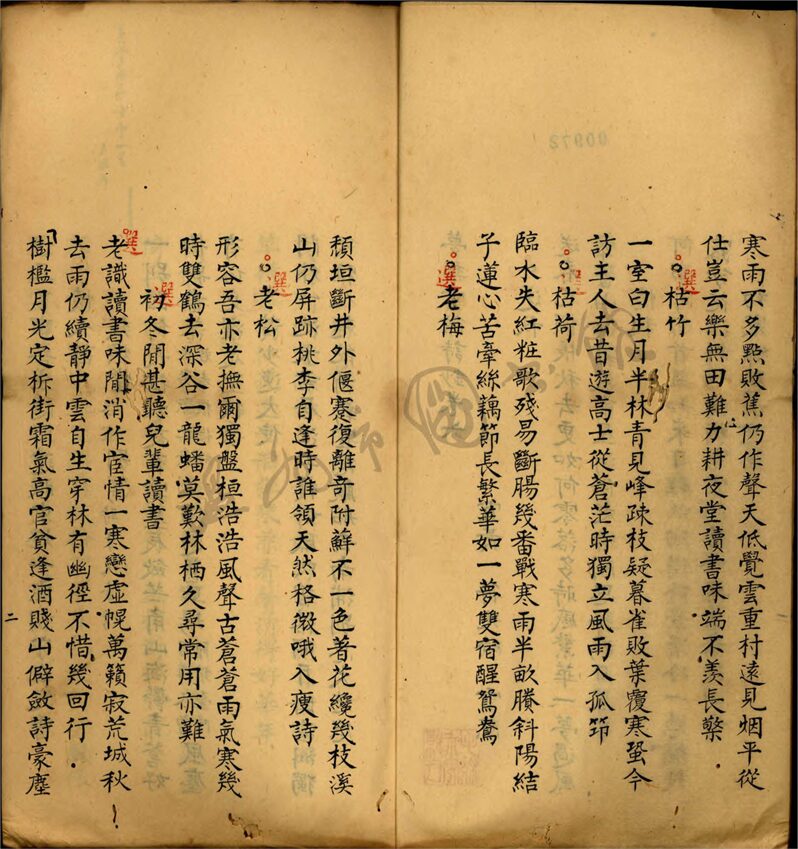 寒雨不多點敗蕉仍作聲天低覺雲重村遠見烟平從
仕豈云樂無田難力耕夜堂讀書味端不羨長檠
心
選
枯竹
一室白生月半林青見峰疎枝疑暮雀敗葉覆寒蛩今
訪主人去昔遊高士從蒼茫時獨立風雨入孤笻
選
枯荷
臨水失紅粧歌殘易斷腸幾番戰寒雨半畝賸斜陽結
子蓮心苦牽絲藕節長繁華如一夢雙宿醒鴛鴦
選
老梅
頹垣斷井外偃蹇復離奇附蘚不一色著花纔幾枝溪
山仍屏跡桃李自逢時誰領天然格微哦入瘦詩
選
老松
形容吾亦老撫爾獨盤桓浩浩風聲古蒼蒼雨氣寒幾
時雙鶴去深谷一龍蟠莫歎林栖久尋常用亦難
選
初冬閒甚聽兒輩讀書
選
老識讀書味閒消作宦情一寒戀虛幌萬籟寂荒城秋
去雨仍續靜中雲自生穿林有幽徑不惜幾回行
樹檻月光定柝街霜氣高官貧逢酒賤山僻斂詩豪塵
二